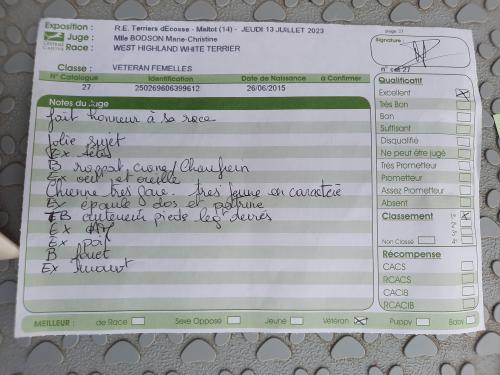 page 27
Exposition : R.E. Terriers dEcosse - Maltot (14) - JEUDI 13 JUILLET 2023
Juge : Mlle BODSON Marie-Christine
Race : WEST HIGHLAND WHITE TERRIER
Signature
Classe : VETERAN FEMELLES
N° Catalogue Identification Date de Naissance à Confirmer
27 250269606399612 26/06/2015
n° cat 27
Notes du Juge
fait honneur à sa race
Jolie sujet
Ex tête
B rapport crane/Chanfrein
Ex oeil et oreille
Chienne tres gaie. tres jeune en caractère
Ex épaule dos et poitrine
TB antérieur pieds leg devies
Ex
Ex poil
B fouet
Ex
Qualificatif
Excellent
Très Bon
Bon
Suffisant
Disqualifié
Ne peut être jugé
Très Prometteur
Prometteur
Assez Prometteur
Absent
Classement 1er
2e
3e
Non Classé 4e
Récompense
CACS
RCACS
CACIB
RCACIB
MEILLEUR : de Race Sexe Opposé Jeune Vétéran Puppy Baby